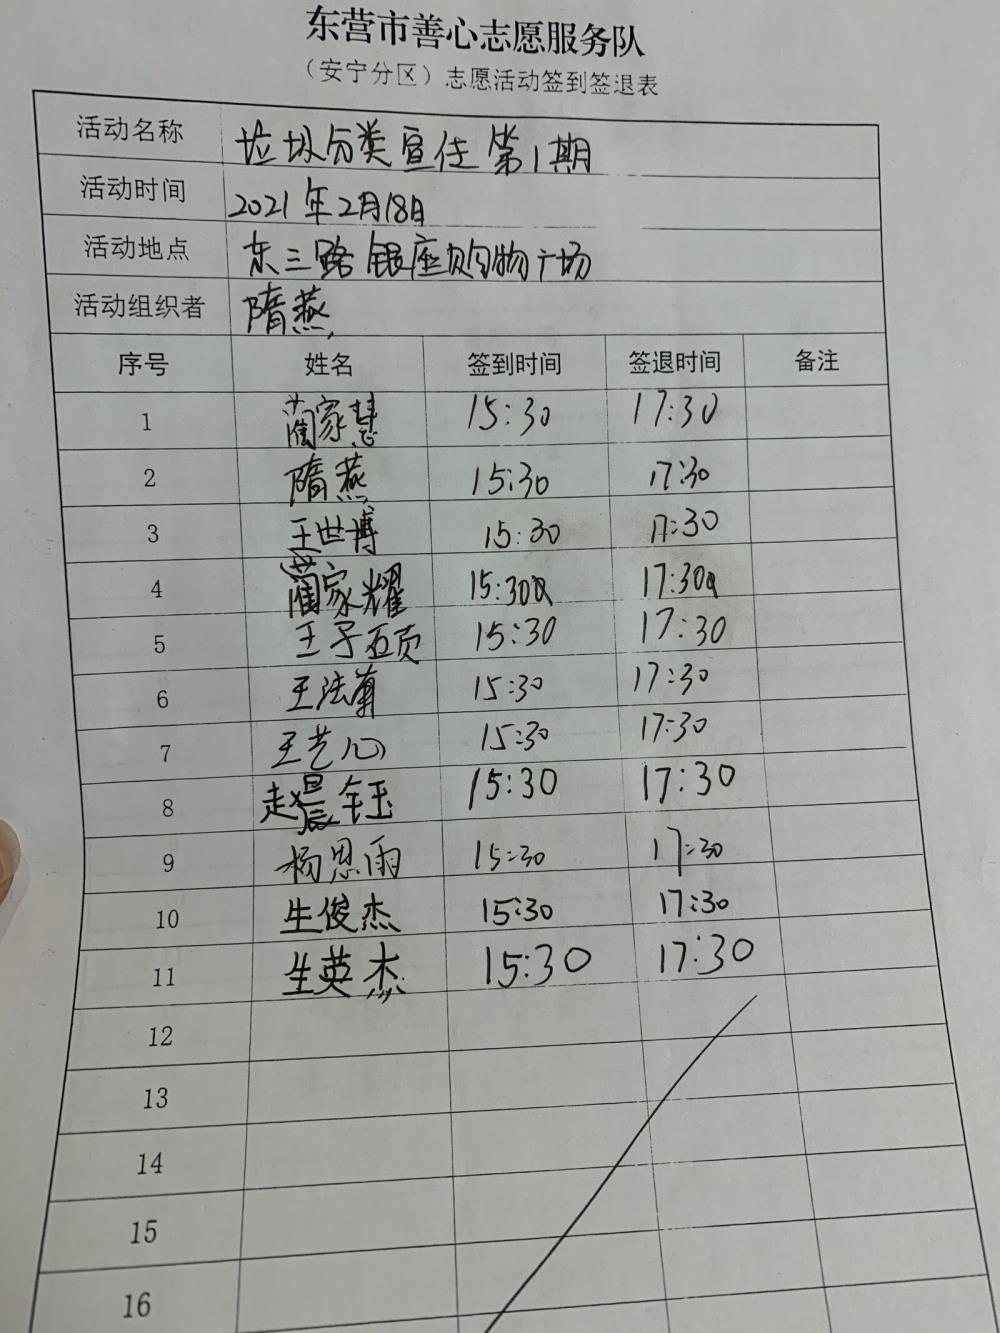 东营市善心志愿服务队
（安宁分区）志愿活动签到签退表
活动名称 垃圾分类宣传 第1期
活动时间 2021年2月18日
活动地点 东三路银座购物广场
活动组织者 隋燕
序号 姓名 签到时间 签退时间 备注
1 蔺家慧 15:30 17:30
2 隋燕 15:30 17:30
3 王世博 15:30 17:30
4 蔺家耀 15:30 17:30
5 王子硕 15:30 17:30
6 15:30 17:30
7 王艺心 15:30 17:30
8 赵晨钰 15:30 17:30
9 杨思雨 15:30 17:30
10 生俊杰 15:30 17:30
11 生英杰 15:30 17:30
12
13
14
15
16